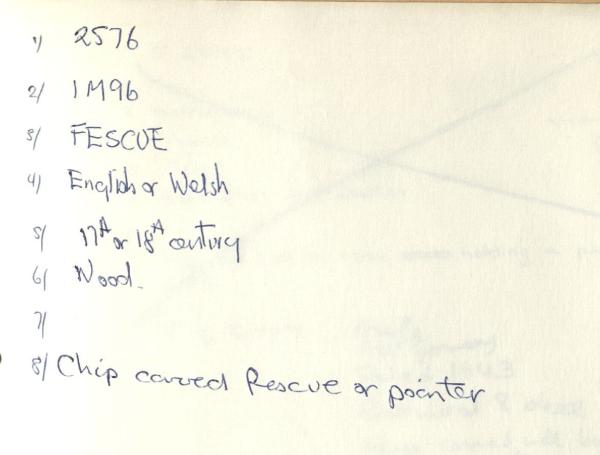 1/ 2576
2/ 1M96
3/ FESCUE
4/ English or Welsh
5/ 17th or 18th century
6/ Wood.
7/
8/ Chip carved Fescue or pointer